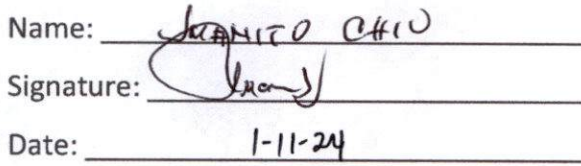 Name: JUANITO CHIU
Signature:
Date: 1-11-24